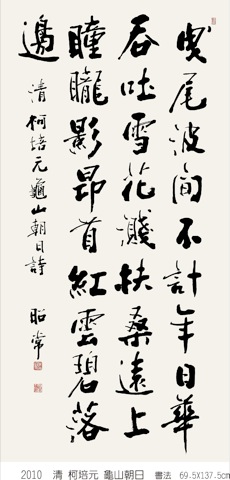 曳尾波間不計年日華
吞吐雪花濺扶桑遠上
曈曨影昂首紅雲碧落
邊
清柯培元龜山朝日詩
昭常
2010 清 柯培元 龜山朝日 書法 69.5X137.5cm